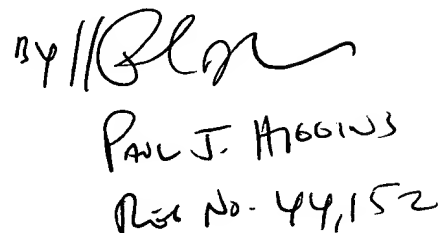 By //
Paul J. Higgins
Reg No. 44,152